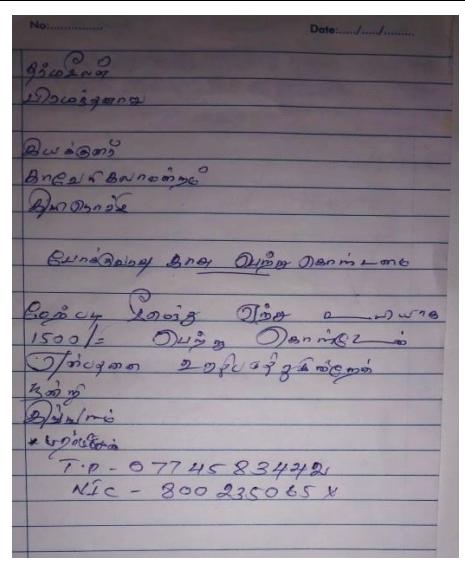 No:............... Date:...../...../.........
தர்மசீலன்
பிரமந்தனாறு
இயக்குனர்
காவேரி கலாமன்றம்
கிளிநொச்சி
போக்குவரத்து காசு பெற்று கொண்டமை
மேற்படி
1500/= பெற்று கொண்டேன்
என்பதனை உறுதிபடுத்துகின்றேன்
நன்றி
இங்ஙனம்
T.P - 0774583442
NIC - 800235065X